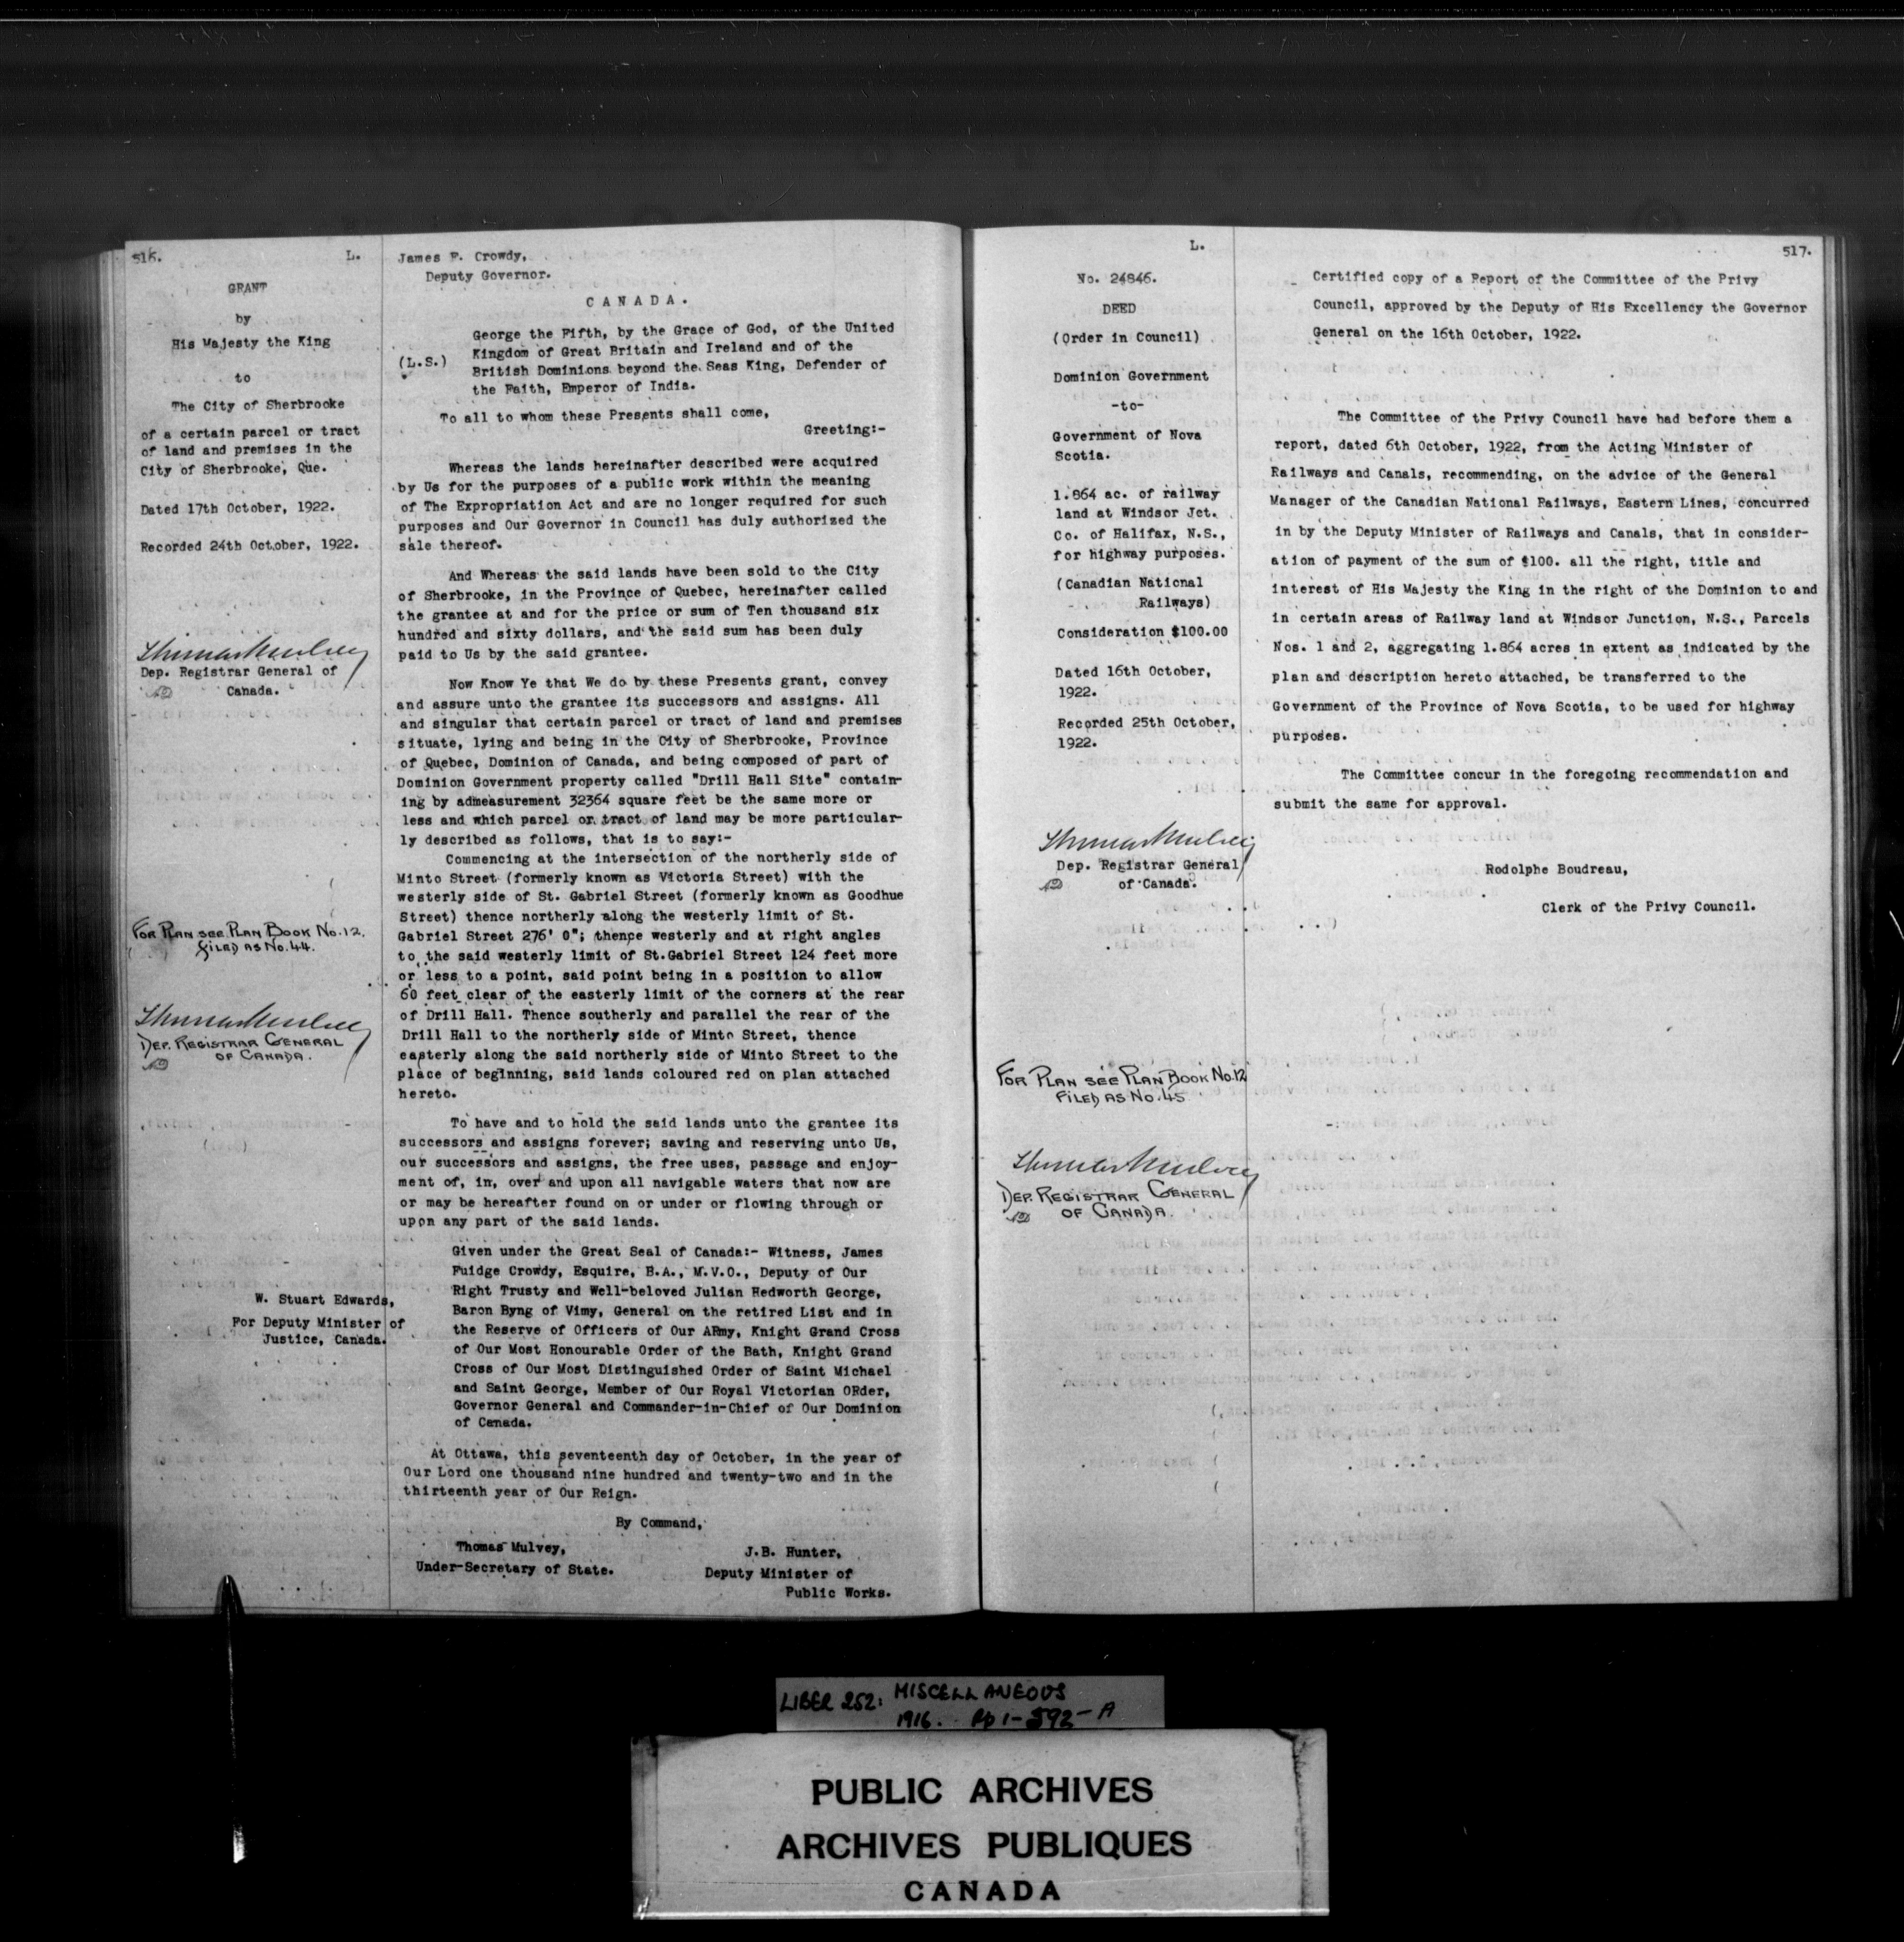 516. L.
GRANT
by
His Majesty the King
to
The City of Sherbrooke
of a certain parcel or tract
of land and premises in the
City of Sherbrooke, Que.
Dated 17th October, 1922.
Recorded 24th October, 1922.
Thomas Mulvey
Dep. Registrar General of
Canada.
FOR PLAN SEE PLAN BOOK No. 12.
FILED AS No. 44.
Thomas Mulvey
DEP. REGISTRAR GENERAL
OF CANADA.
W. Stuart Edwards,
For Deputy Minister of
Justice, Canada.
James F. Crowdy,
Deputy Governor.
CANADA.
(L.S.)
George the Fifth, by the Grace of God, of the United
Kingdom of Great Britain and Ireland and of the
British Dominions beyond the Seas King, Defender of
the Faith, Emperor of India.
To all to whom these Presents shall come,
Greeting:-
Whereas the lands hereinafter described were acquired
by Us for the purposes of a public work within the meaning
of The Expropriation Act and are no longer required for such
purposes and Our Governor in Council has duly authorized the
sale thereof.
And Whereas the said lands have been sold to the City
of Sherbrooke, in the Province of Quebec, hereinafter called
the grantee at and for the price or sum of Ten thousand six
hundred and sixty dollars, and the said sum has been duly
paid to Us by the said grantee.
Now Know Ye that We do by these Presents grant, convey
and assure unto the grantee its successors and assigns. All
and singular that certain parcel or tract of land and premises
situate, lying and being in the City of Sherbrooke, Province
of Quebec, Dominion of Canada, and being composed of part of
Dominion Government property called "Drill Hall Site" contain-
ing by admeasurement 32364 square feet be the same more or
less and which parcel or tract of land may be more particular-
ly described as follows, that is to say:-
Commencing at the intersection of the northerly side of
Minto Street (formerly known as Victoria Street) with the
westerly side of St. Gabriel Street (formerly known as Goodhue
Street) thence northerly along the westerly limit of St.
Gabriel Street 276' 0"; thence westerly and at right angles
to the said westerly limit of St.Gabriel Street 124 feet more
or less to a point, said point being in a position to allow
60 feet clear of the easterly limit of the corners at the rear
of Drill Hall. Thence southerly and parallel the rear of the
Drill Hall to the northerly side of Minto Street, thence
easterly along the said northerly side of Minto Street to the
place of beginning, said lands coloured red on plan attached
hereto.
To have and to hold the said lands unto the grantee its
successors and assigns forever; saving and reserving unto Us,
our successors and assigns, the free uses, passage and enjoy-
ment of, in, over and upon all navigable waters that now are
or may be hereafter found on or under or flowing through or
upon any part of the said lands.
Given under the Great Seal of Canada:- Witness, James
Fuidge Crowdy, Esquire, B.A., M.V.O., Deputy of Our
Right Trusty and Well-beloved Julian Hedworth George,
Baron Byng of Vimy, General on the retired List and in
the Reserve of Officers of Our ARmy, Knight Grand Cross
of Our Most Honourable Order of the Bath, Knight Grand
Cross of Our Most Distinguished Order of Saint Michael
and Saint George, Member of Our Royal Victorian ORder,
Governor General and Commander-in-Chief of Our Dominion
of Canada.
At Ottawa, this seventeenth day of October, in the year of
Our Lord one thousand nine hundred and twenty-two and in the
thirteenth year of Our Reign.
By Command,
Thomas Mulvey,
Under-Secretary of State.
J.B. Hunter,
Deputy Minister of
Public Works.
L. 517.
No. 24846.
DEED
(Order in Council)
Dominion Government
-to-
Government of Nova
Scotia.
1.864 ac. of railway
land at Windsor Jct.
Co. of Halifax, N.S.,
for highway purposes.
(Canadian National
Railways)
Consideration $100.00
Dated 16th October,
1922.
Recorded 25th October,
1922.
Thomas Mulvey
Dep. Registrar General
of Canada.
FOR PLAN SEE PLAN BOOK No.12
FILED AS No. 45
Thomas Mulvey
DEP. REGISTRAR GENERAL
OF CANADA.
Certified copy of a Report of the Committee of the Privy
Council, approved by the Deputy of His Excellency the Governor
General on the 16th October, 1922.
The Committee of the Privy Council have had before them a
report, dated 6th October, 1922, from the Acting Minister of
Railways and Canals, recommending, on the advice of the General
Manager of the Canadian National Railways, Eastern Lines, concurred
in by the Deputy Minister of Railways and Canals, that in consider-
ation of payment of the sum of $100. all the right, title and
interest of His Majesty the King in the right of the Dominion to and
in certain areas of Railway land at Windsor Junction, N.S., Parcels
Nos. 1 and 2, aggregating 1.864 acres in extent as indicated by the
plan and description hereto attached, be transferred to the
Government of the Province of Nova Scotia, to be used for highway
purposes.
The Committee concur in the foregoing recommendation and
submit the same for approval.
Rodolphe Boudreau,
Clerk of the Privy Council.
LIBER 252: MISCELLANEOUS
1916. Pp 1-592-A
PUBLIC ARCHIVES
ARCHIVES PUBLIQUES
CANADA